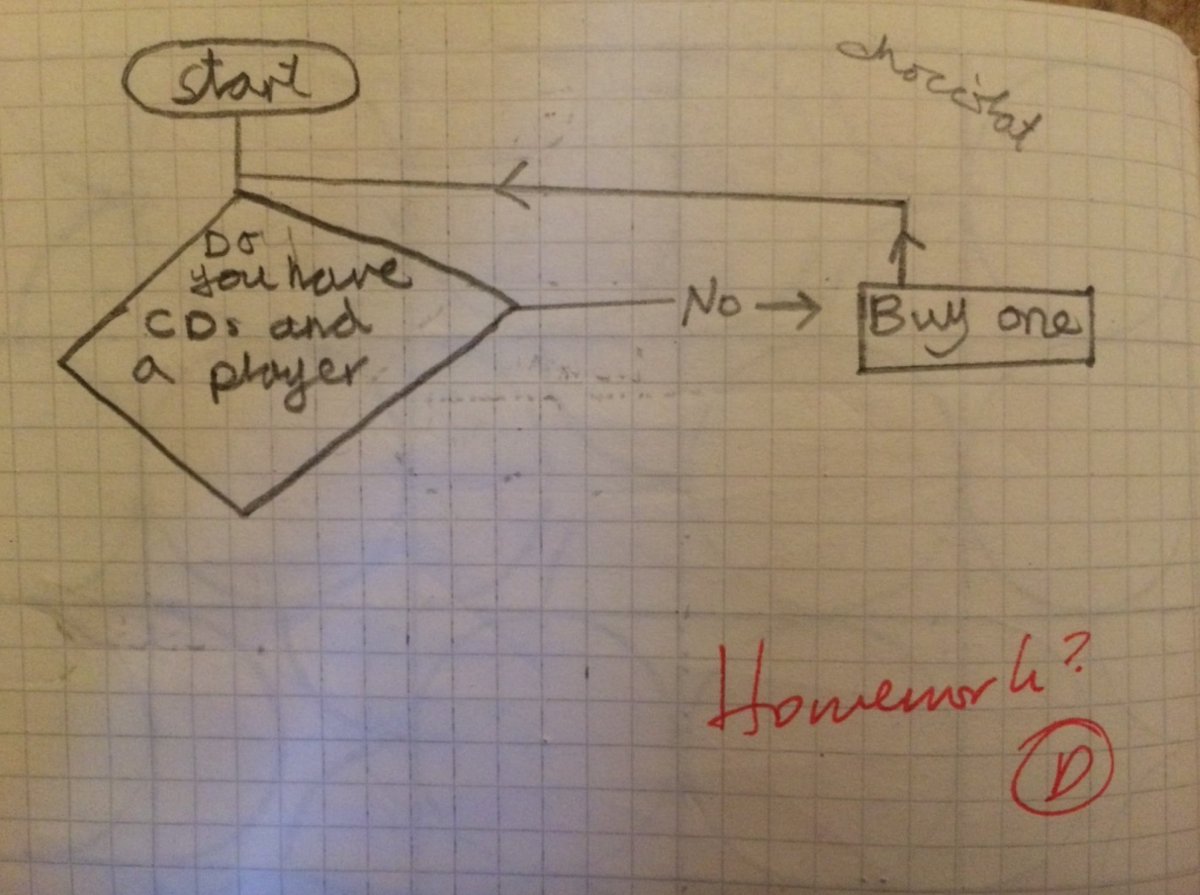 start
Do
you have
CDs and
a player
No
Buy one
Homework?
D